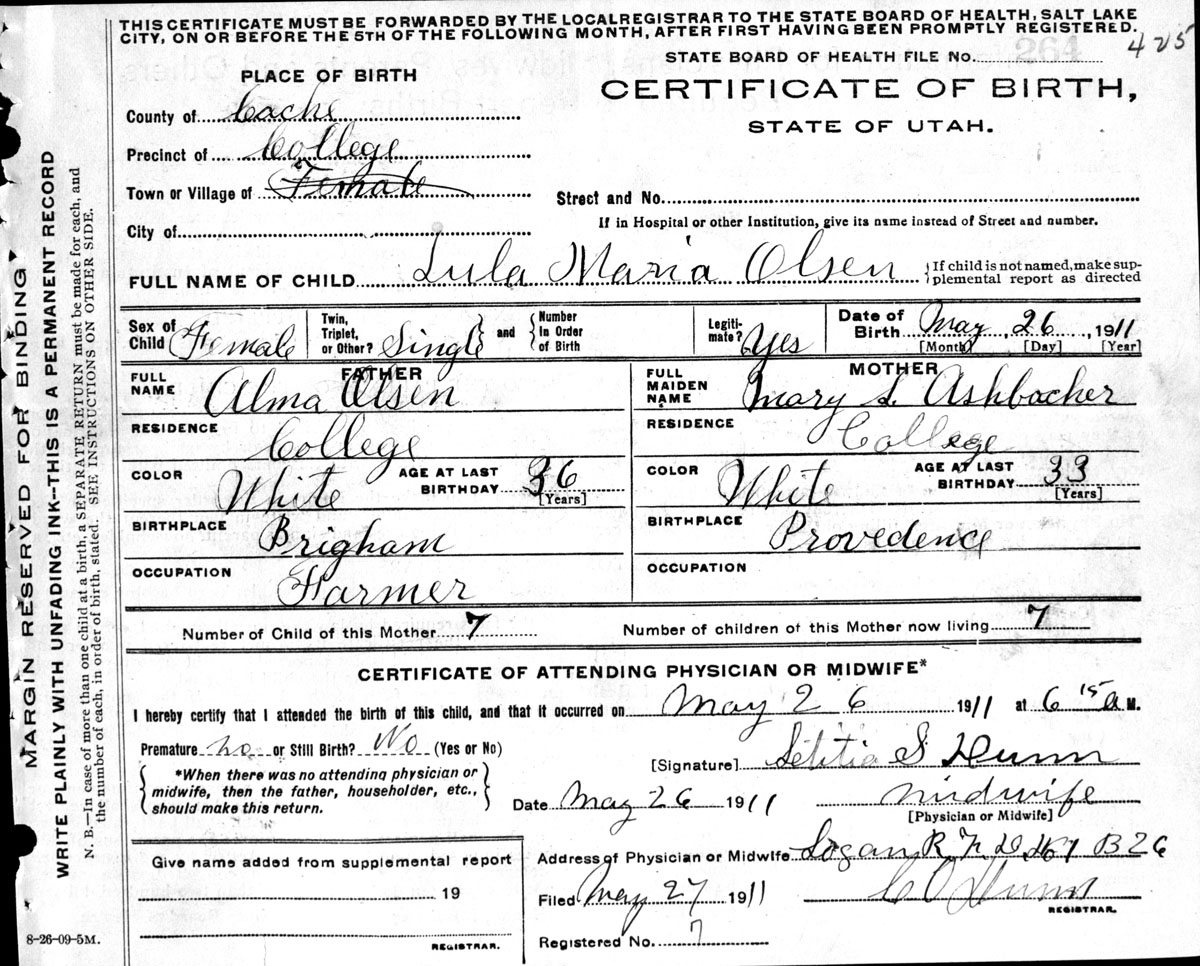 THIS CERTIFICATE MUST BE FORWARDED BY THE LOCAL REGISTRAR TO THE STATE BOARD OF HEALTH, SALT LAKE
CITY, ON OR BEFORE THE 5TH OF THE FOLLOWING MONTH, AFTER FIRST HAVING BEEN PROMPTLY REGISTERED.
425
STATE BOARD OF HEALTH FILE No. 264
PLACE OF BIRTH
CERTIFICATE OF BIRTH,
STATE OF UTAH.
County of Cache
Precinct of College
Town or Village of Female
Street and No.
City of
If in Hospital or other Institution, give its name instead of Street and number.
FULL NAME OF CHILD Lula Maria Olsen
If child is not named, make sup-
plemental report as directed
Sex of Child Female
Twin, Triplet, or Other? Single and Number In Order of Birth
Legiti-mate? Yes
Date of Birth May 26, 1911
[Month] [Day] [Year]
FATHER
FULL NAME Alma Olsen
RESIDENCE College
COLOR White AGE AT LAST BIRTHDAY 36 [Years]
BIRTHPLACE Brigham
OCCUPATION Farmer
MOTHER
FULL MAIDEN NAME Mary L. Ashbacker
RESIDENCE College
COLOR White AGE AT LAST BIRTHDAY 33 [Years]
BIRTHPLACE Provedence
OCCUPATION
Number of Child of this Mother 7 Number of children of this Mother now living 7
CERTIFICATE OF ATTENDING PHYSICIAN OR MIDWIFE*
I hereby certify that I attended the birth of this child, and that it occurred on May 26 1911 at 6 15 a M.
Premature no or Still Birth? No (Yes or No)
*When there was no attending physician or
midwife, then the father, householder, etc.,
should make this return.
[Signature] Letitia S Dunn
Date May 26 1911 midwife
[Physician or Midwife]
Give name added from supplemental report
19
REGISTRAR.
Address of Physician or Midwife Logan R. F. D B 26
Filed May 27 1911 C O Dunn
REGISTRAR.
Registered No. 7
8-26-09-5M.
MARGIN RESERVED FOR BINDING
WRITE PLAINLY WITH UNFADING INK--THIS IS A PERMANENT RECORD
N. B.—In case of more than one child at a birth, a SEPARATE RETURN must be made for each, and
the number of each, in order of birth, stated. SEE INSTRUCTIONS ON OTHER SIDE.